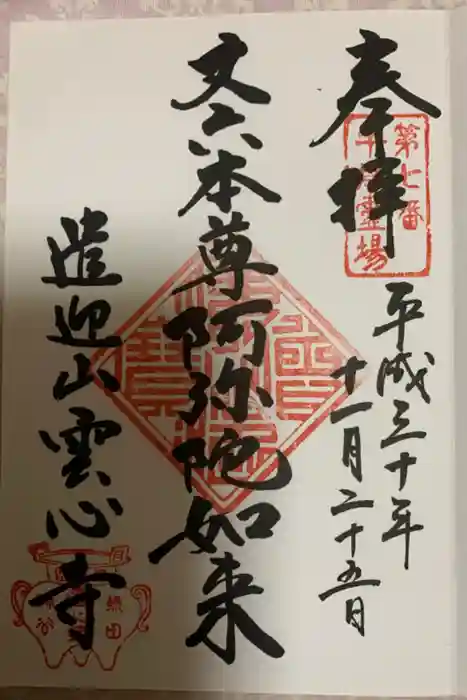 奉拝
第七番
霊場
平成三十年
十一月二十五日
丈六本尊阿弥陀如来
遣迎山雲心寺